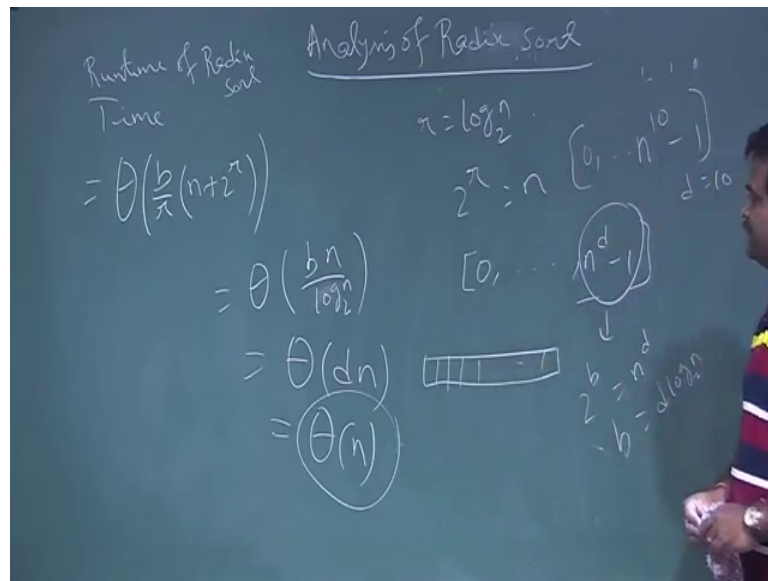 Analysis of Radix Sort
Runtime of Radix
Sort
Time
= Θ(b/r (n+2^r))
= Θ(bn/log₂n)
= Θ(dn)
= Θ(n)
r = log₂n
2^r = n
[0, ... n^10 - 1]
d = 10
[0, ... n^d - 1]
↓
2^b = n^d
b = d log₂n